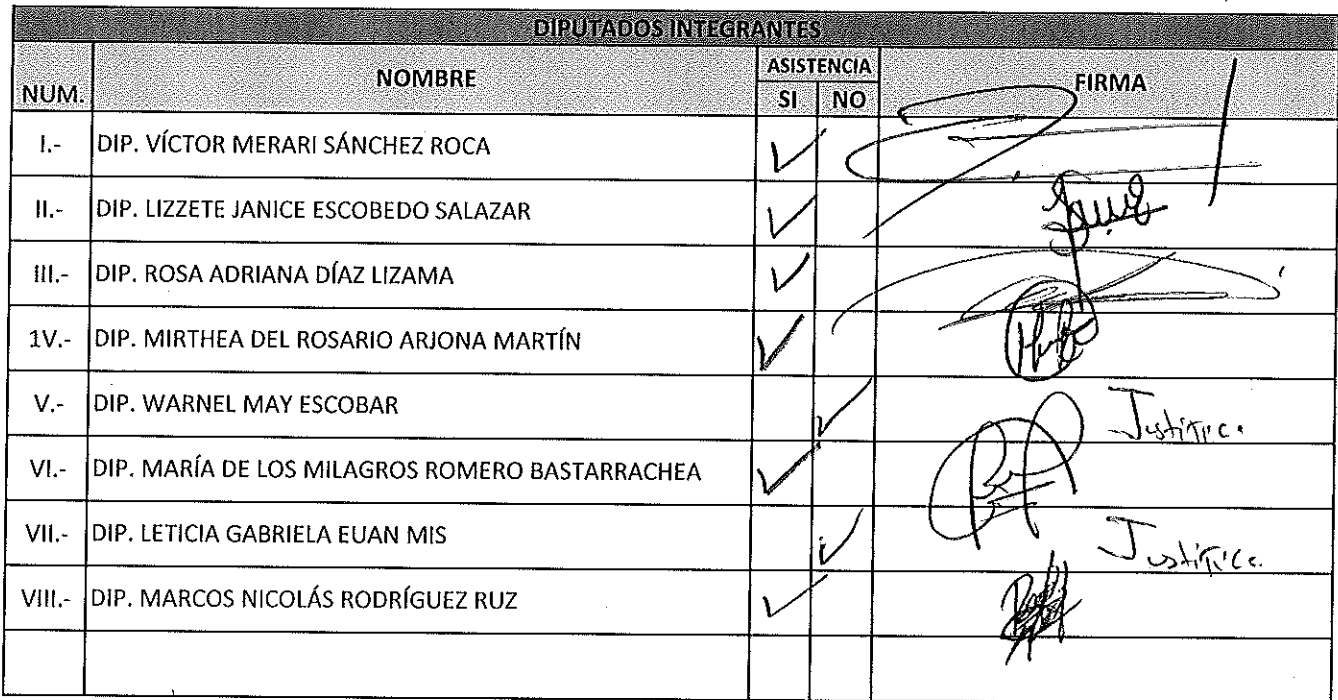 DIPUTADOS INTEGRANTES
NUM. NOMBRE ASISTENCIA FIRMA
SI NO
I.- DIP. VÍCTOR MERARI SÁNCHEZ ROCA ✓
II.- DIP. LIZZETE JANICE ESCOBEDO SALAZAR ✓
III.- DIP. ROSA ADRIANA DÍAZ LIZAMA ✓
1V.- DIP. MIRTHEA DEL ROSARIO ARJONA MARTÍN ✓
V.- DIP. WARNEL MAY ESCOBAR ✓ Justifica
VI.- DIP. MARÍA DE LOS MILAGROS ROMERO BASTARRACHEA ✓
VII.- DIP. LETICIA GABRIELA EUAN MIS ✓ Justifica
VIII.- DIP. MARCOS NICOLÁS RODRÍGUEZ RUZ ✓